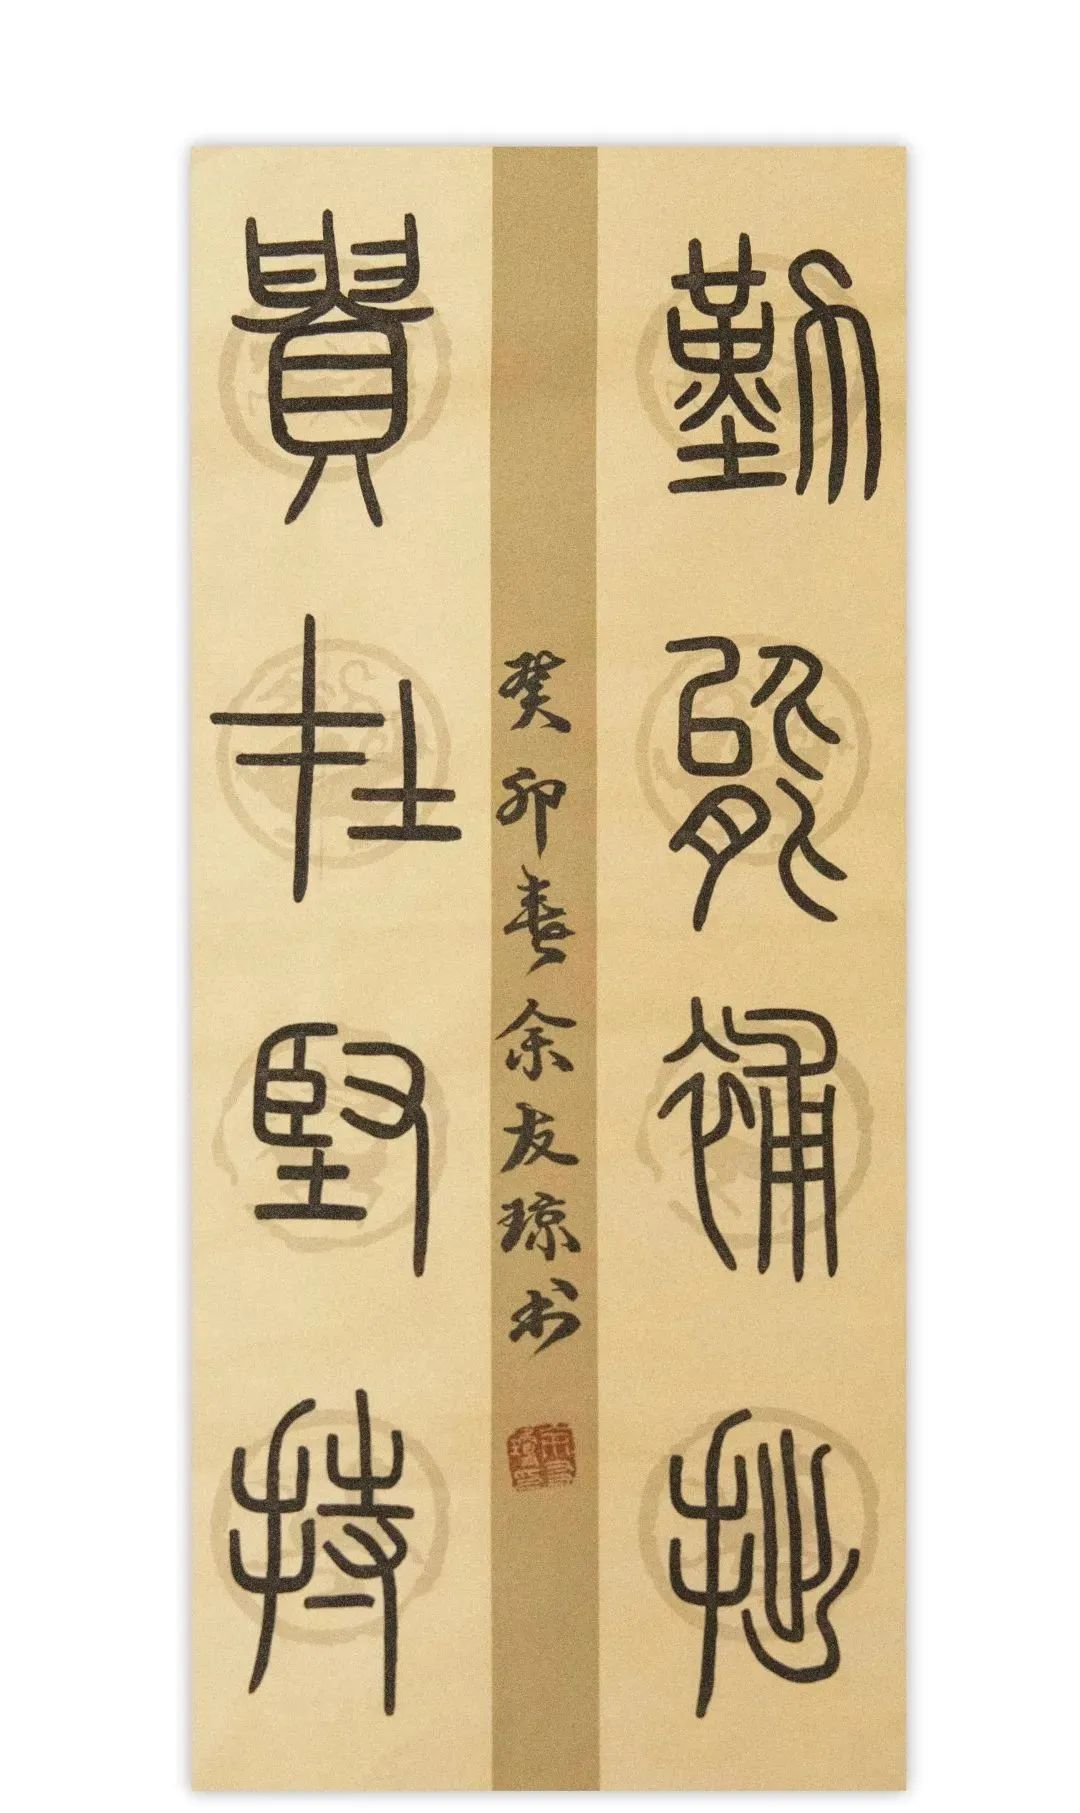 勤能補拙
貴在堅持
癸卯春余友琼书